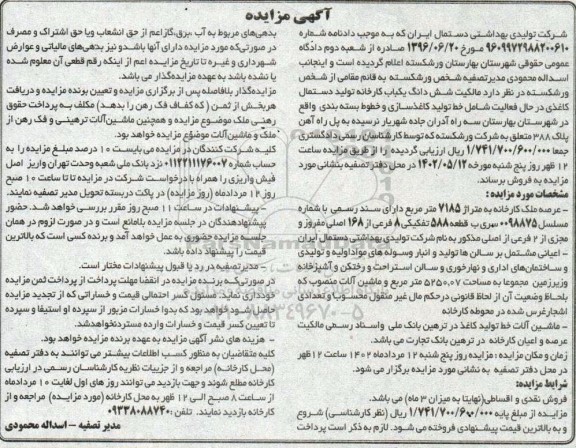 آگهی مزایده
شرکت تولیدی بهداشتی دستمال ایران که به موجب دادنامه شماره
۹۶۰۹۹۷۲۹۸۸۲۰۰۶۱۰ مورخ ۱۳۹۶/۰۶/۲۰ صادره از شعبه دوم دادگاه
عمومی حقوقی شهرستان بهارستان ورشکسته اعلام گردیده است و اینجانب
اسداله محمودی مدیر تصفیه شخص ورشکسته به قائم مقامی از شخص
ورشکسته در نظر دارد مالکیت شش دانگ یکباب کارخانه تولید دستمال
کاغذی در حال فعالیت شامل خط تولید کاغذسازی و خطوط بسته بندی واقع
در شهرستان بهارستان سه راه آدران جاده شهریار نرسیده به پل راه آهن
پلاک ۳۸۸ متعلق به شرکت ورشکسته که توسط کارشناسان رسمی دادگستری
جمعا ۱/۷۴۱/۷۰۰/۶۰۰/۰۰۰ ریال ارزیابی گردیده را از طریق مزایده ساعت
۱۲ ظهر روز پنج شنبه مورخه ۱۴۰۲/۰۵/۱۲ در محل دفتر تصفیه بنشانی مورد
مزایده به فروش برساند.
مشخصات مورد مزایده :
- عرصه ملک کارخانه به متراژ ۷۱۸۵ متر مربع دارای سند رسمی با شماره
مسلسل ۰۰۹۸۸۷۵ سری ب قطعه ۵۸۸ تفکیکی ۸ فرعی از ۱۶۸ اصلی مفروز و
مجزی از ۲ فرعی از اصلی مذکور به نام شرکت تولیدی بهداشتی دستمال ایران
- اعیانی مشتمل بر سالن ها تولید و انبار وسوله های مواد اولیه و تولیدی
و ساختمان‌های اداری و نهارخوری و سالن استراحت و رختکن و آشپزخانه
وزیرزمین مجموعا به مساحت ۵۲۵۰,۰۷ متر مربع و ماشین آلات منصوب که
بلحاظ وضعیت آن از لحاظ قانونی در حکم مال غیر منقول محسوب و تعدادی
اشجار غرس شده در محوطه کارخانه
- ماشین آلات خط تولید کاغذ در ترهین بانک ملی و اسناد رسمی مالکیت
عرصه و اعیان کارخانه در ترهین بانک تجارت می باشد.
زمان و مکان مزایده : مزایده روز پنج شنبه ۱۲ مردادماه ۱۴۰۲ ساعت ۱۲ ظهر
در محل دفتر تصفیه به نشانی مورد مزایده برگزار می شود.
شرایط مزایده:
فروش نقدی و اقساطی (نهایتا به میزان ۳ ماه) می باشد.
مزایده از مبلغ پایه ۱/۷۴۱/۷۰۰/۶۰۰/۰۰۰ ریال (نظر کارشناسی) شروع
و به بالاترین قیمت پیشنهادی فروخته می شود. لازم به ذکر است پرداخت
بدهی‌های مربوط به آب، برق، گاز اعم از حق انشعاب و یا حق اشتراک و مصرف
در صورتی‌که مورد مزایده دارای آنها باشد و نیز بدهی‌های مالیاتی و عوارض
شهرداری و غیره تا تاریخ مزایده اعم از اینکه رقم قطعی آن معلوم شده
یا نشده باشد به عهده مزایده‌گذار می باشد.
مزایده‌گذار بلافاصله پس از برگزاری مزایده و تعیین برنده مزایده و دریافت
هر بخش از ثمن ( که کفاف فک رهن را بدهد) مکلف به پرداخت حقوق
رهنی ملک موضوع مزایده و همچنین ماشین‌آلات ترهینی و فک رهن از
ملک و ماشین آلات موضوع مزایده خواهد بود.
کلیه شرکت کنندگان در مزایده می بایست ۱۰ درصد مبلغ مزایده را به
حساب شماره ۰۱۱۲۲۱۱۱۷۶۰۰۷ نزد بانک ملی شعبه وحدت تهران واریز اصل
فیش واریزی را همراه با درخواست شرکت در مزایده تا تا ساعت ۱۰ صبح
روز ۱۲ مردادماه (روز مزایده) در پاکت دربسته تحویل مدیر تصفیه نمایند.
- پیشنهادات در ساعت ۱۱ صبح روز مقرر بررسی خواهد شد. حضور
پیشنهاددهندگان در جلسه مزایده بلامانع است و در صورت لزوم در همان
جلسه مزایده حضوری به عمل خواهد آمد و برنده کسی است که بالاترین
قیمت را پیشنهاد داده باشد.
- مدیر تصفیه در رد یا قبول پیشنهادات مختار است.
در صورتی‌که برنده مزایده در انقضا مهلت پرداخت از پرداخت ثمن مزایده
خودداری نماید مسئول کسر احتمالی قیمت و خساراتی که از تجدید مزایده
حاصل شود خواهد بود که بدوا خسارات مزبور از سپرده او استیفا و سپرده
تا تعیین کسر قیمت و خسارات وارده مسترد نخواهد شد.
- هزینه های نشر آگهی مزایده به عهده برنده مزایده خواهد بود.
کلیه متقاضیان به منظور کسب اطلاعات بیشتر می توانند به دفتر تصفیه
(محل کارخانه) مراجعه و از جزییات نظریه کارشناسان رسمی در ارزیابی
کارخانه مطلع شوند و جهت بازدید می توانند روز های اول لغایت ۱۰ مردادماه
از ساعت ۸ صبح الی ۱۲ ظهر به محل کارخانه (مورد مزایده) مراجعه و از
کارخانه بازدید نمایند. تلفن : ۰۹۳۳۸۰۸۸۷۴۰
مدیر تصفیه - اسداله محمودی